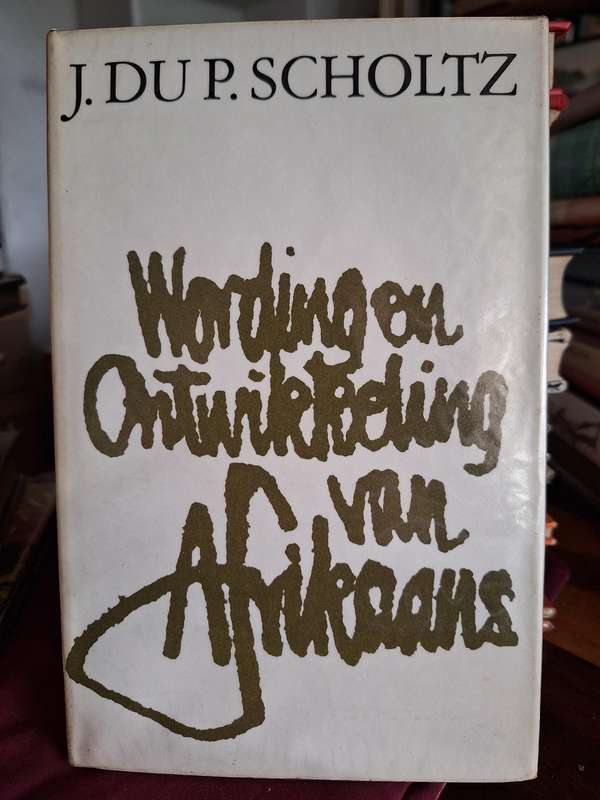 J. DU P. SCHOLTZ
Wording en
Ontwikkeling
van
Afrikaans